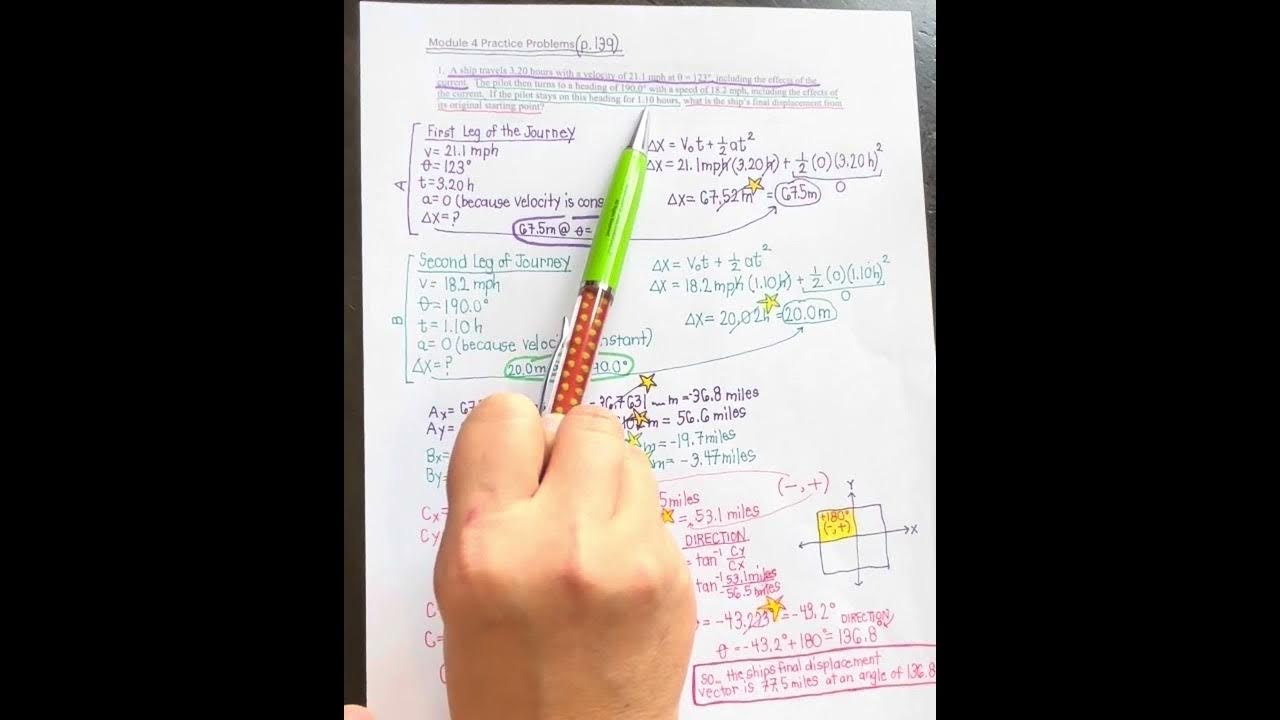 Module 4 Practice Problems (p.139)
1. A ship travels 3.20 hours with a velocity of 21.1 mph at θ = 123°, including the effects of the
current. The pilot then turns to a heading of 190.0° with a speed of 18.2 mph, including the effects of
the current. If the pilot stays on this heading for 1.10 hours, what is the ship's final displacement from
its original starting point?
A
First Leg of the Journey
v = 21.1 mph
θ = 123°
t = 3.20 h
a = 0 (because velocity is cons
ΔX = ?
67.5m @ θ =
ΔX = V₀t + ½at²
ΔX = 21.1mph (3.20 h) + ½ (0) (3.20 h)²
0
ΔX = 67.52 m = 67.5m
B
Second Leg of Journey
v = 18.2 mph
θ = 190.0°
t = 1.10 h
a = 0 (because veloci nstant)
ΔX = ?
20.0m 90.0°
ΔX = V₀t + ½at²
ΔX = 18.2 mph (1.10 h) + ½ (0) (1.10h)²
0
ΔX = 20.02h = 20.0m
Ax = 67 -36.7631 m = -36.8 miles
Ay = m = 56.6 miles
Bx = m = -19.7 miles
By m = -3.47 miles
Cx = 5 miles
(-, +)
Cy = 53.1 miles
Y
+180°
(-, +)
X
DIRECTION
= tan⁻¹ Cy/Cx
tan⁻¹ 53.1 miles/-56.5 miles
C = -43.223 = -43.2° DIRECTION
C = θ = -43.2° + 180° = 136.8
SO... the ships final displacement
vector is 77.5 miles at an angle of 136.8